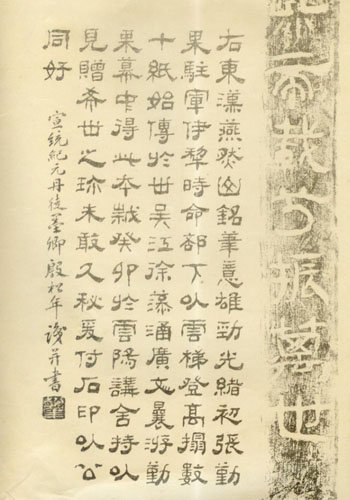 帝載兮振萬世
右東漢燕然山銘筆意雄勁光緒初張勤
果駐軍伊犂時命部下以雲梯登高搨數
十紙始傳於世吳江徐藻涵廣文曩游勤
果幕中得此本歲癸卯於雲陽講舍持以
見贈希世之珍未敢久秘爰付石印以公
同好
宣統紀元丹徒墨卿殷松年識并書